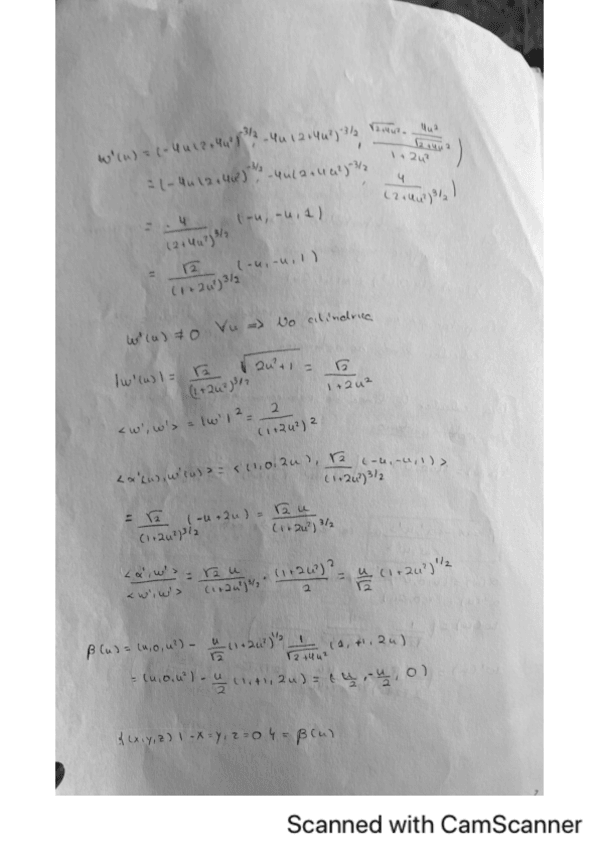 w'(u) = (-4u(2+4u²)^-3/2, -4u(2+4u²)^-3/2, (√(2+4u²) - 4u²/√(2+4u²))/(1+2u²))
= (-4u(2+4u²)^-3/2, -4u(2+4u²)^-3/2, 4/(2+4u²)^3/2)
= 4/(2+4u²)^3/2 (-u, -u, 1)
= √2/(1+2u²)^3/2 (-u, -u, 1)
w'(u) ≠ 0 ∀u => No cilíndrica
|w'(u)| = √2/(1+2u²)^3/2 √(2u²+1) = √2/(1+2u²)
<w', w'> = |w'|² = 2/(1+2u²)²
<α'(u), w'(u)> = <(1,0,2u), √2/(1+2u²)^3/2 (-u,-u,1)>
= √2/(1+2u²)^3/2 (-u+2u) = √2 u/(1+2u²)^3/2
<α', w'>/<w', w'> = √2 u/(1+2u²)^3/2 · (1+2u²)²/2 = u/√2 (1+2u²)^1/2
β(u) = (u,0,u²) - u/√2 (1+2u²)^1/2 1/√(2+4u²) (1, +1, 2u)
= (u,0,u²) - u/2 (1,+1,2u) = (u/2, -u/2, 0)
{(x,y,z) | -x=y, z=0} = β(u)
Scanned with CamScanner